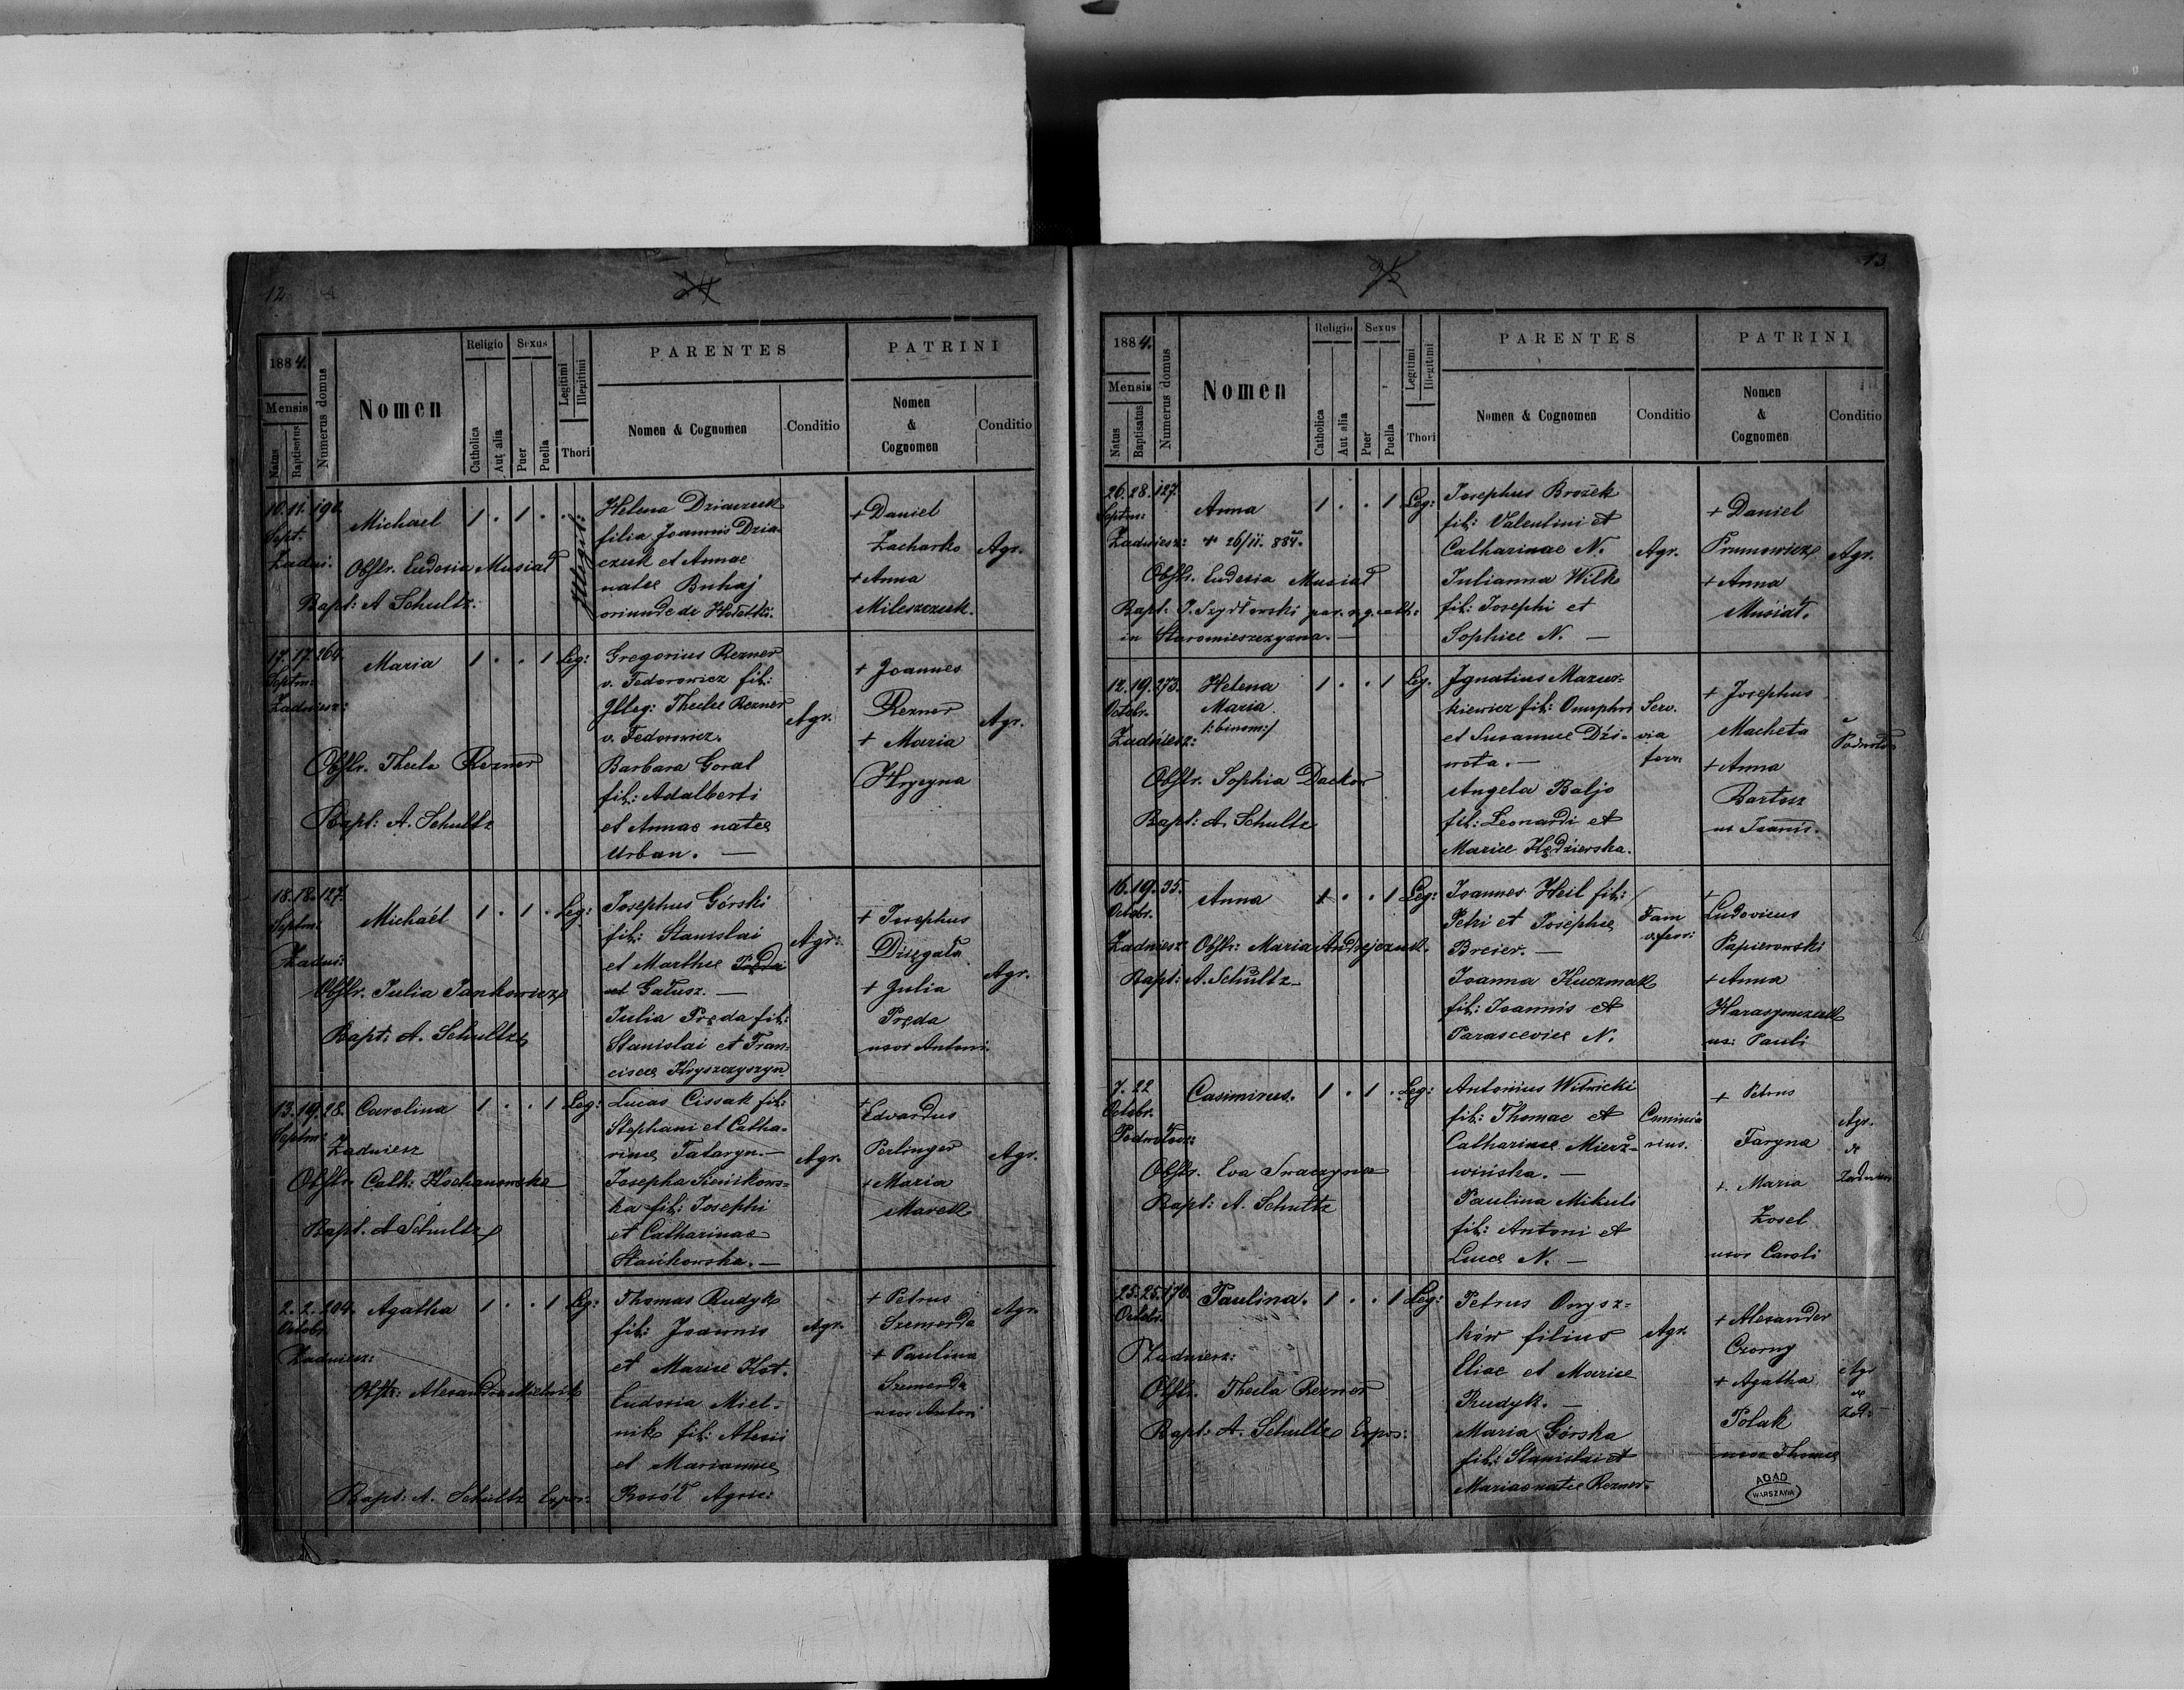 12
24
1884.
Mensis
Natus
Baptisatus
Numerus domus
Nomen
Religio
Catholica
Aut alia
Sexus
Puer
Puella
Legitimi
Illegitimi
Thori
PARENTES
Nomen & Cognomen
Conditio
PATRINI
Nomen
&
Cognomen
Conditio
10. 11. 190.
Sept.
Zadni:
Michael 1 . 1 . .
Illegit:
Obstr. Eudosia Musiał
Bapt: A Schultz.
Helena Dziaczuk
filia Joannis Dzia-
czuk et Annae
natae Buhaj
oriunde de
+ Daniel
Zacharko
+ Anna
Mileszczuk.
Agr.
17. 17. 264.
Septm:
Zadniesz:
Maria 1 . . 1 Leg:
Obstr. Thecla Rezner
Bapt: A. Schultz
Gregorius Rezner
v. Fedorowicz fil:
Illeg: Theclae Rezner
v. Fedorowicz.
Barbara Goral
fil: Adalberti
et Annae natae
Urban. —
Agr.
+ Joannes
Rezner
+ Maria
Hrycyna
Agr.
18. 18. 127.
Septm:
Zadni:
Michaël 1 . 1 . Leg:
Obstr. Julia Jankowicz
Bapt: A. Schultz
Josephus Górski
fil: Stanislai
et Marthae
Gałusz. —
Julia Pręda fil:
Stanislai et Fran-
ciscae Kryszczyszyn
Agr:
+ Josephus
Dzięgała
+ Julia
Pręda
uxor Antoni.
Agr.
13. 19. 28.
Septm:
Carolina 1 . . 1 Leg:
Zadniesz
Obstr. Cath: Kochanowska
Bapt. A Schultz
Lucas Cissak fil:
Stephani et Catha-
rinae Tataryn. —
Josepha Sienikows-
ka fil: Josephi
et Catharinae
Stańkowska. —
Agr.
+ Edvardus
Perlinger
+ Maria
Marek
Agr.
2. 2. 204.
Octobr.
Zadniesz:
Agatha 1 . . 1 Leg:
Obstr: Alexandra Mielnik
Bapt: A. Schultz Expos:
Thomas Rudyk
fil: Joannis
et Mariae Kot.
Eudoxia Miel-
nik fil: Alexii
et Mariannae
Rosół Agric:
Agr.
+ Petrus
Szemerda
+ Paulina
Szemerda
uxor Antoni
Agr.
13
1884.
Mensis
Natus
Baptisatus
Numerus domus
Nomen
Religio
Catholica
Aut alia
Sexus
Puer
Puella
Legitimi
Illegitimi
Thori
PARENTES
Nomen & Cognomen
Conditio
PATRINI
Nomen
&
Cognomen
Conditio
26. 28. 127.
Septm:
Zadniesz:
Anna 1 . . 1 Leg:
+ 26/11. 884.
Obstr. Eudosia Musiał
Bapt. J. Szydłowski par. r. g. cath:
in Staromieszczyzna. —
Josephus Brożek
fil: Valentini et
Catharinae N.
Julianna Wilk
fil: Josephi et
Sophiae N. —
Agr.
+ Daniel
Prumowicz
+ Anna
Musiał.
Agr.
12. 19. 273.
Octobr.
Zadniesz:
Helena 1 . . 1 Leg.
Maria
/:binom:/
Obstr. Sophia Dackow
Bapt: A. Schultz
Ignatius Mazur-
kiewicz fil: Onuphri
et Susannae Dzi-
wota. —
Angela Baljo
fil: Leonardi et
Mariae Kędzierska.
Ser.
via
ferr
+ Josephus
Macheta
+ Anna
Bartosz
ux Joanis.
16. 19. 35.
Octobr.
Zadniesz
Anna 1 . . 1 Leg:
Obstr: Maria Andrejczuk.
Bapt: A. Schultz
Joannes Heil fil:
Petri et Josephae
Breier. —
Joanna Kuczmak
fil: Joannis et
Parasceviae N.
Fam
v. ferr:
+
Ludovicus
Papierowski
+ Anna
Harasymczuk
ux: Pauli
7. 22
Octobr.
Podwołocz:
Casimirus. 1 . 1 . Leg:
Obstr. Eva Swaczyna
Bapt: A. Schultz
Antonius Witwicki
fil: Thomae et
Catharinae Mierz-
wińska. —
Paulina Mikuli
fil: Antoni et
Luce N. —
Comissa
rius.
+ Petrus
Faryna
+. Maria
Zosel
uxor Caroli
Agr.
de
25. 25. 176.
Octobr.
Zadniesz:
Paulina. 1 . . 1 Leg:
Obstr. Thecla Rezner
Bapt: A. Schultz Expos:
Petrus Onysz-
ków filius
Eliae et Mariae
Rudyk. —
Maria Górska
fil: Stanislai et
Mariae natae Rezner.
Agr.
+ Alexander
Czorny
+ Agatha
Polak
uxor Thomae
Agr
AGAD
WARSZAWA